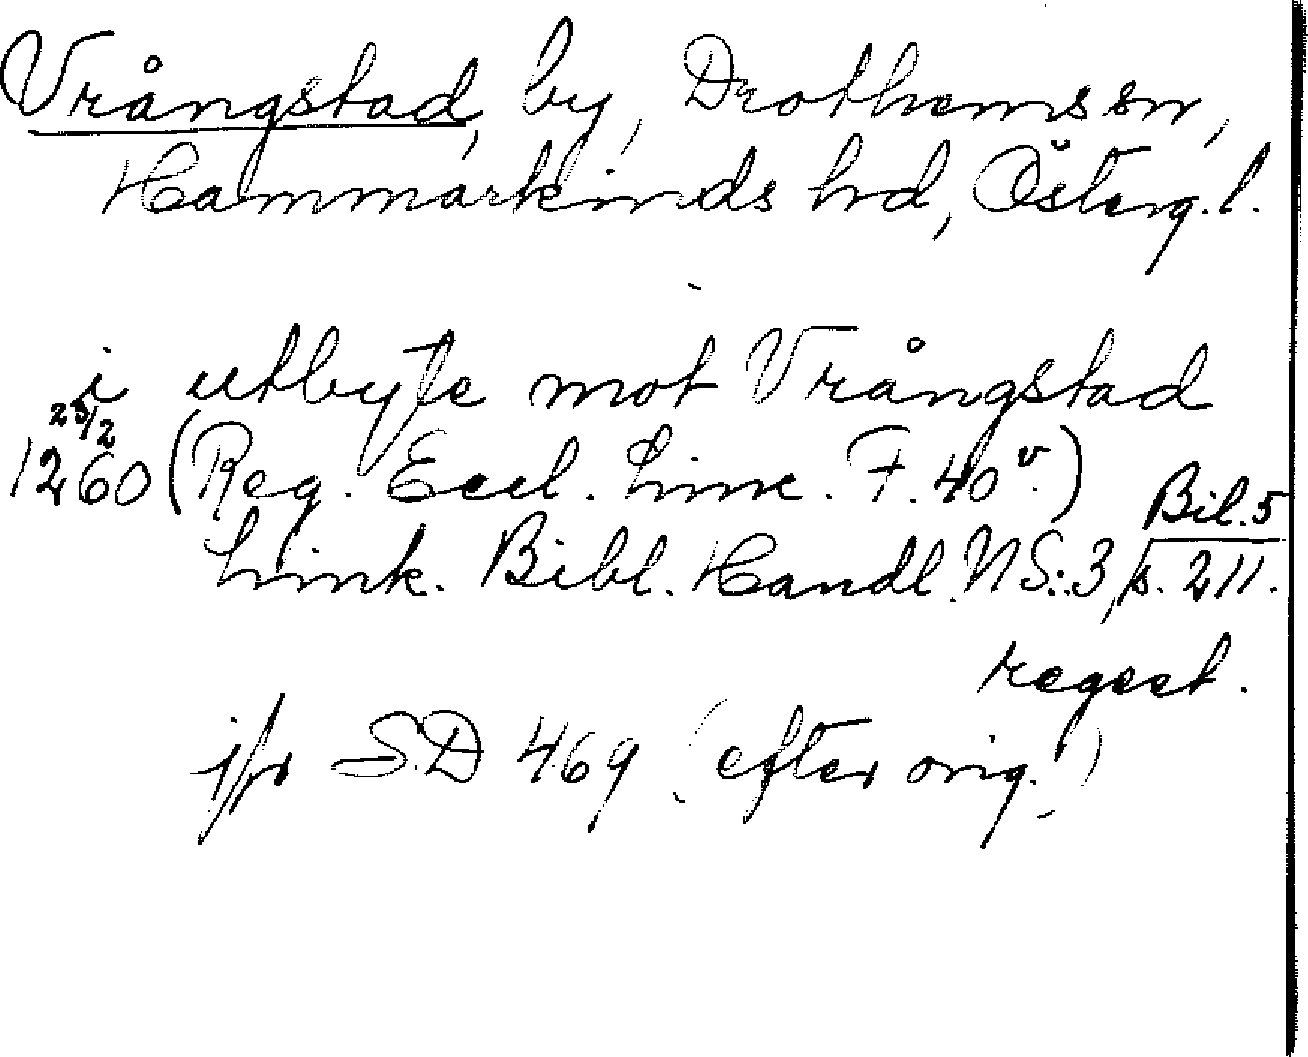 Vrångstad, by, Drothems sn,
Hammarkinds hd, Österg. l.
i utbyte mot Vrångstad
23/2
1260 (Reg. Eccl. Linc. F. 40 v.)
Bil. 5
Link. Bibl. Handl. NS: 3, s. 211.
regest.
jfr S.D 469 (efter orig.)